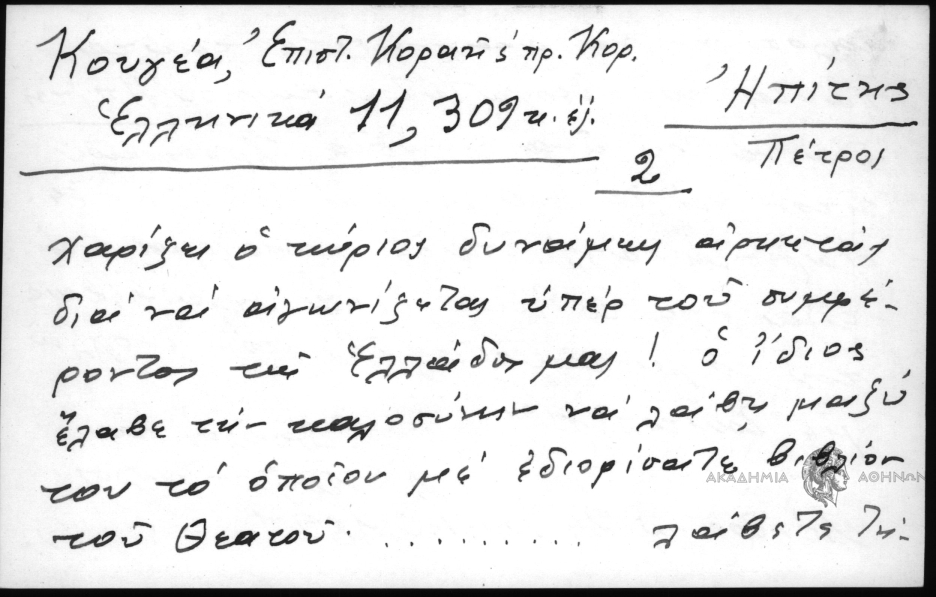 Κουγέα, Ἐπιστ. Κοραῆ ς΄ πρ. Κορ.
Ἑλληνικά 11, 309 κ. ἑξ.
Ἠπίτης
Πέτρος
2
χαρίζῃ ὁ κύριος δυνάμεις ἀρκετάς
διά νά ἀγωνίζεται ὑπέρ τοῦ συμφέ-
ροντος τῆς Ἑλλάδος μας! ὁ ἴδιος
ἔλαβε τήν καλοσύνην νά λάβῃ μαζύ
του τό ὁποῖον μέ ἐδιορίσατε βιβλίον
τοῦ .......... λάβετε τή-
ΑΚΑΔΗΜΙΑ ΑΘΗΝΩΝ